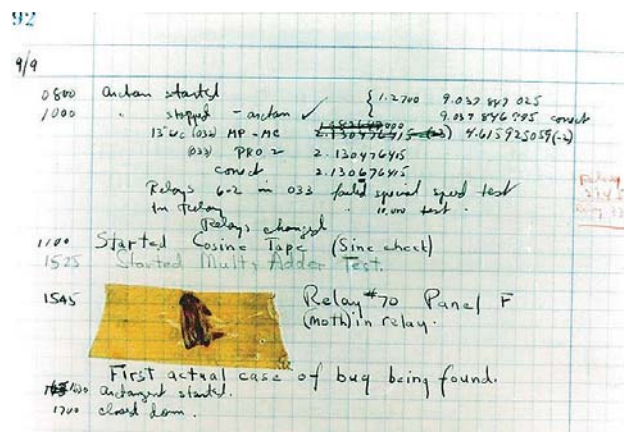 92
9/9
0800 antan started
1000 " stopped - antan ✓ { 1.2700 9.037 847 025
9.037 846 795 conect
13"uc (032) MP-MC 2.130476415 4.615925059(-2)
(033) PRO 2 2.130476415
conect 2.130676415
Relays 6-2 in 033 failed special speed test
In Relay " 10.000 test.
Relays changed
1100 Started Cosine Tape (Sine check)
1525 Started Mult+Adder Test.
1545 Relay #70 Panel F
(moth) in relay.
First actual case of bug being found.
1630 antangent started.
1700 closed down.
Relay